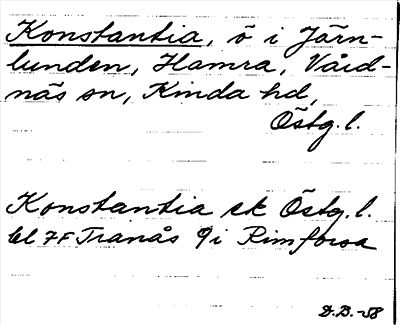 Konstantia, ö i Järn-
lunden, Hamra, Vård-
näs sn, Kinda hd,
Östg. l.
Konstantia ek Östg. l.
bl 7F Tranås 9 i Rimforsa
D.B. -58